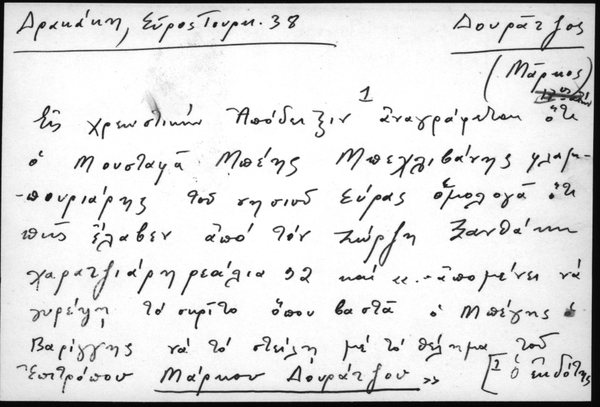 Δρακάκη, Σύρος Τουρκ. 38
Δουράτζος
(Μάρκος)
1
Εἰς χρεωστικὴν ἀπόδειξιν ἀναγράφεται ὅτι
ὁ Μουσταφᾶ Μπέης Μπεχλιβάνης φλαμ-
-πουριάρης τοῦ νησιοῦ Σύρας ὁμολογᾶ ὅτι
πῶς ἔλαβεν ἀπό τόν Γιώργη Ξανθάκη
χαρατζιάρη ρεάλια 92 καί «.. ἀπομένει νά
γυρέψη τό σκρίτο ὁπου βαστᾶ ὁ Μπέγης ὁ
Βαρίγγης νά τό στείλη μέ τό θέλημα τοῦ
Ἐπιτρόπου Μάρκου Δουράτζου »
[1 ὁ ἐκδότης